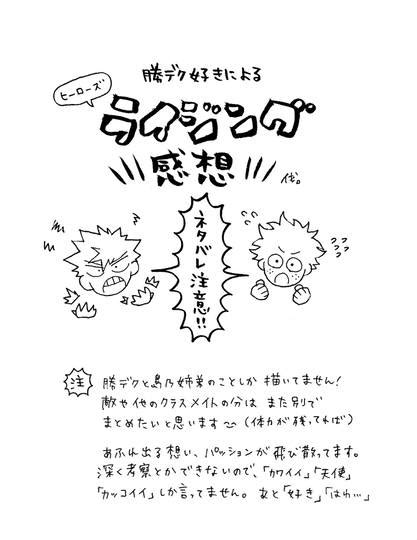 勝デク好きによる
ヒーローズ
ライジング
感想
ネタバレ注意!!
フフフフ
注
勝デクと島乃姉弟のことしか描いてません!
敵や他のクラスメイトの分は また別で
まとめたいと思います〜(体力が残ってれば)
あふれ出る想い、パッションが飛び散ってます。
深く考察とかできないので、「カワイイ」「天使」
「カッコイイ」しか言ってません。あと「好き」「はわ…」